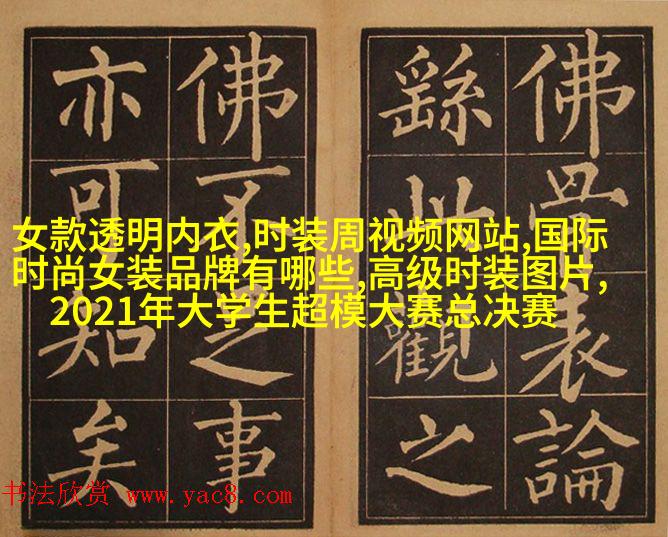 佛表論
繇此觀之
佛不事
亦可知矣
女款透明内衣,时装周视频网站,国际
时尚女装品牌有哪些,高级时装图片,
2021年大学生超模大赛总决赛
书法欣赏 www.yac8.com